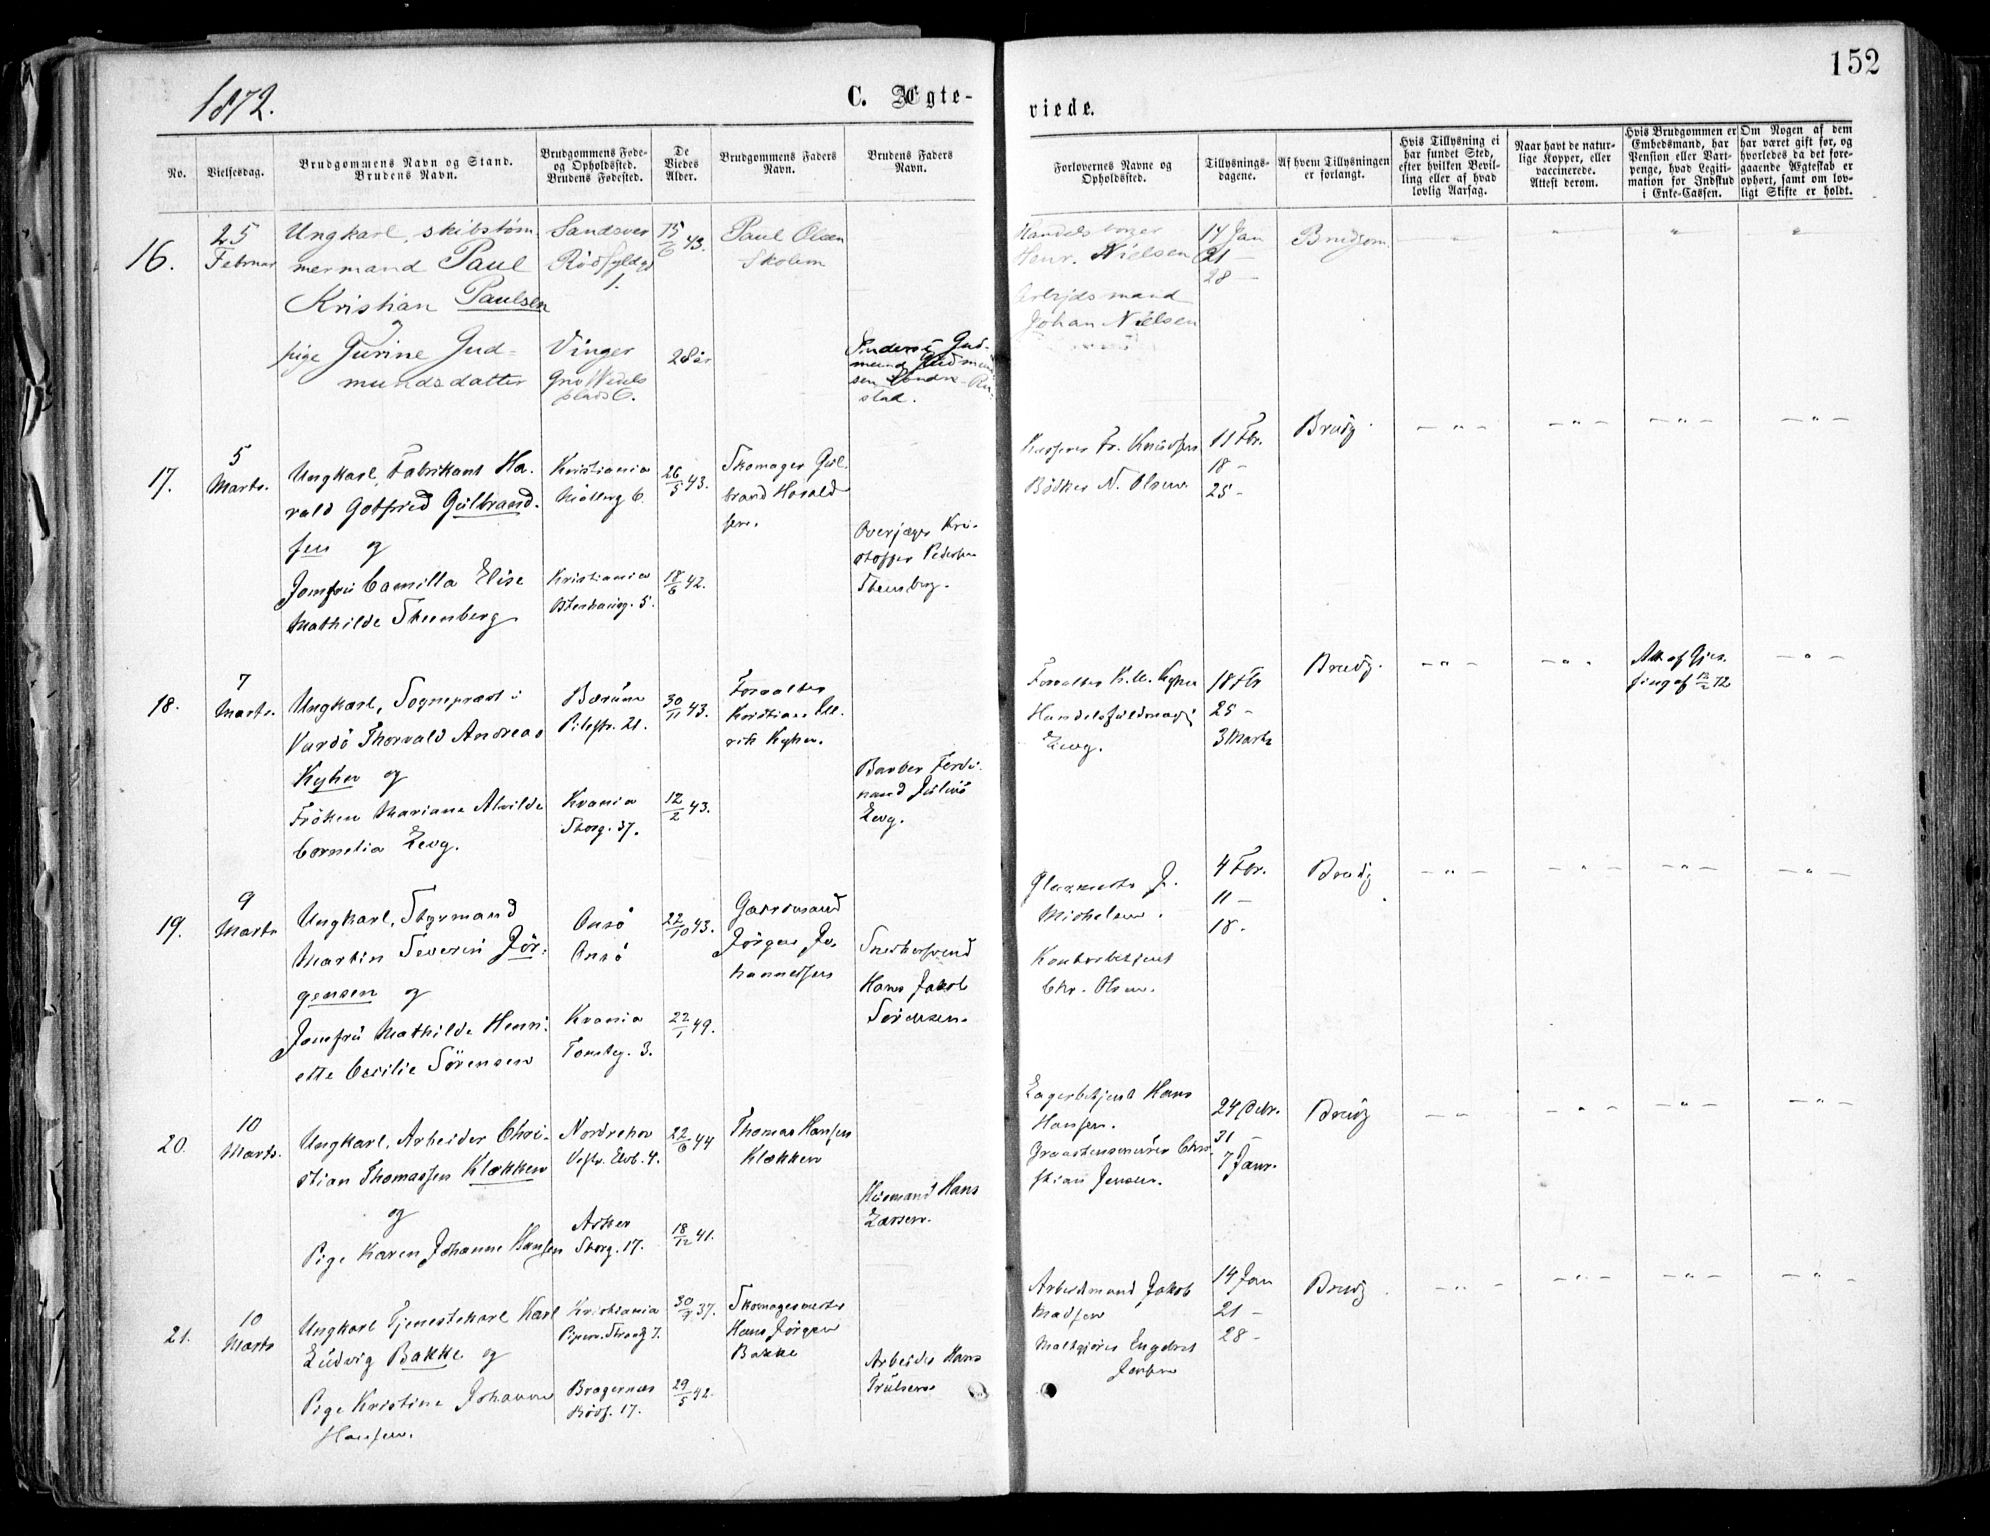 152
1872.
C. Ægte-
viede.
No.
Vielsesdag.
Brudgommens Navn og Stand.
Brudens Navn.
Brudgommens Føde-
og Opholdssted.
Brudens Fødested.
De
Viedes
Alder.
Brudgommens Faders
Navn.
Brudens Faders
Navn.
Forlovernes Navne og
Opholdssted.
Tillysnings-
dagene.
Af hvem Tillysningen
er forlangt.
Hvis Tillysning ei
har fundet Sted,
efter hvilken Bevil-
ling eller af hvad
lovlig Aarsag.
Naar havt de natur-
lige Kopper, eller
vaccinerede.
Attest derom.
Hvis Brudgommen er
Embedsmand, har
Pension eller Vart-
penge, hvad Legiti-
mation for Indskud
i Enke-Cassen.
Om Nogen af dem
har været gift før, og
hvorledes da det fore-
gaaende Ægteskab er
ophørt, samt om lov-
ligt Skifte er holdt.
16.
25
Februar
Ungkarl, skibstøm
mermand Paul
Kristian Paulsen
og
pige Gurine Gud-
mundsdatter
Sandsver
Rødfyldgd
1.
Vinger
Grø Wedels
plads 6.
15/6 43.
28 år
Paul Olsen
Skolem
Gud-
mund Gudmund
sen Søndre
stad.
Handelsborger
Henr. Nielsen
Arbeidsmand
Johan Nielsen
14 Jan
21 —
28 —
Brudgom.
17.
5
Marts.
Ungkarl, Fabrikant Ha-
rald Gotfred Gulbrand-
sen og
Jomfru Camilla Elise
Mathilde Steenberg
Kristiania
6.
Kristiania
5.
26/5 43.
18/6 42.
Skomager Gul-
brand Harald
sen.
Overjæger Kri-
stoffer Pedersen
Steenberg.
Fr. Knudsen
Bødker N. Olsen
11 Fbr.
18 -
25 -
Brudg.
18.
7
Marts.
Ungkarl, Sognepræst i
Vardö Thorvald Andreas
Kyhn og
Frøken Mariane Alvilde
Cornelia Levg.
Bærum
Pilestr. 21.
Krania
Storg. 37.
30/11 43.
12/2 43.
Forvalter
Kristian
rik Kyhn.
Barber Ferdi-
nand Julius
Levg.
Forvalter Kyhn
Handelsfuldmægt
Levg.
18 Fbr
25 -
3 Marts
Brudg.
Att. af
12/2 72
19.
9
Marts
Ungkarl, Styrmand
Martin Severin Jør-
gensen og
Jomfru Mathilde Henri-
ette Cecilie Sörensen
Onsö
Onsö
Krania
Tomteg. 3.
22/10 43.
22/1 49.
Gaardmand
Jörgen Jo-
hannessen
Snedkersvend
Hans Jakob
Sörensen.
Glarmester J.
Michelsen.
Kontorbetjent
Chr. Olsen.
4 Fbr.
11 —
18 -
Brudg
20.
10
Marts.
Ungkarl, Arbeider Chri-
stian Thomassen Klækken
og
Pige Karen Johanne Hansen
Norderhov
Vestr. Elvb. 4.
Asker
Storg. 17.
22/6 44
18/12 41.
Thomas Hansen
Klækken
Husmand Hans
Larsen.
Lagerbetjent Hans
Hansen.
Graastensmurer Chri-
stian Jensen.
24 Debr.
31
7 Janr.
Brudg
21.
10
Marts
Ungkarl Tjenestekarl Karl
Ludvig Bakke og
Pige Kristine Johanne
Hansen.
Kristiania
7.
Bragernæs
Rödf. 17.
37.
29/5 42.
Skomagermester
Hans Jørgen
Bakke
Arbeider Hans
Trulsen
Arbeidsmand Jakob
Madsen
Maltgjører Engebret
Jensen
14 Jan
21 —
28 -
Brudg